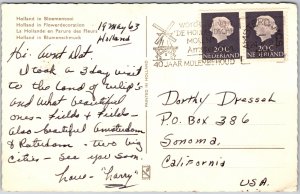 Holland in Bloementooi
Holland in Flowerdecoration
La Hollande en Parure des Fleurs
Holland in Blumenschmuck
19 May 63
Holland
Hi- Aunt Dot.
I took a 3 day visit
to the land of Tulip's
and what beautiful
ones - fields & fields -
Also beautiful Amsterdam
& Roterdam - two big
cities - See you soon.
Love - "Harry"
PRINTED IN HOLLAND
WORDT
DE HOLL
MOLEN
40 JAAR MOLENBEHOUD
20c
NEDERLAND
20c
NEDERLAND
Dorthy Dressah
P.O. Box 386
Sonoma,
California
U.S.A.